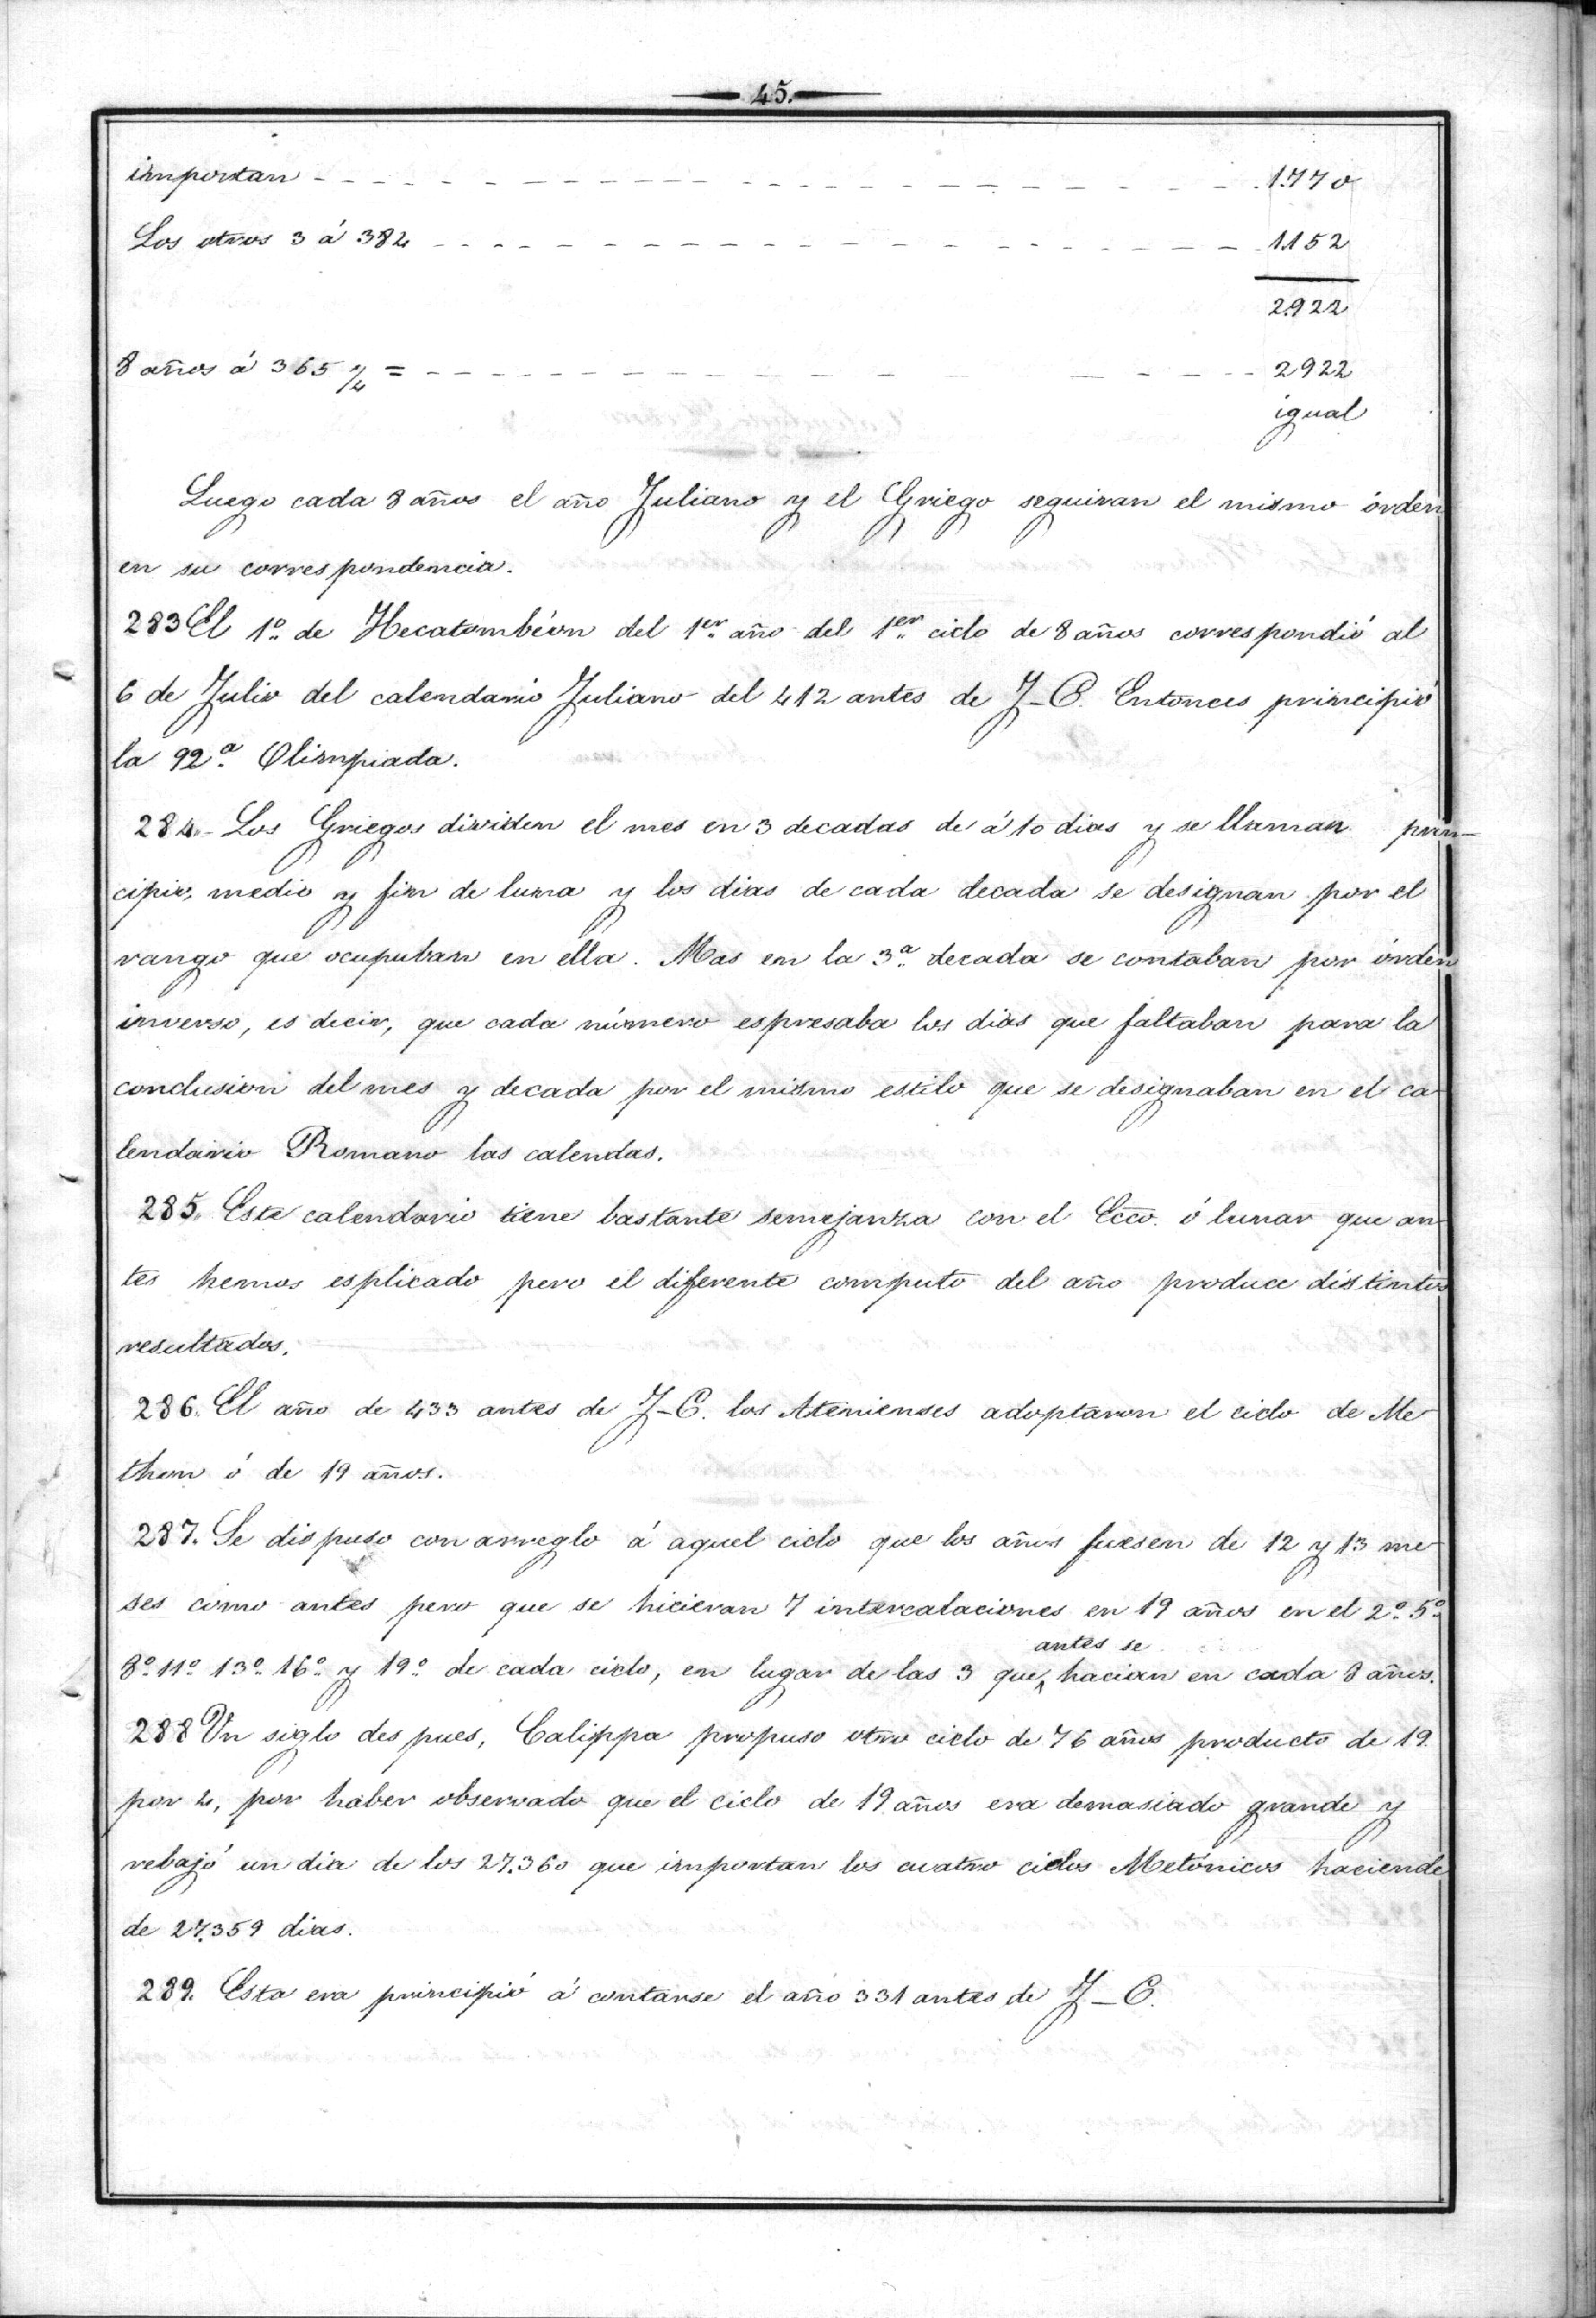 45.
importan - - - - - - - - - - - - - - - - - - - - - - - 1770
Los otros 3 á 384 - - - - - - - - - - - - - - - - - - - - 1152
2922
8 años á 365 1/4 = - - - - - - - - - - - - - - - - - - 2922
igual
Luego cada 8 años el año Juliano y el Griego seguiran el mismo órden
en su correspondencia.
283 El 1º de Hecatombéon del 1er año del 1er ciclo de 8 años correspondió al
6 de Julio del calendario Juliano del 412 antes de J-C. Entonces principió
la 92ª Olimpiada.
284.- Los Griegos dividen el mes en 3 decadas de á 10 dias y se llaman prin-
cipio, medio y fin de luna y los dias de cada decada se designan por el
rango que ocupaban en ella. Mas en la 3ª decada se contaban por órden
inverso, es decir, que cada número espresaba los dias que faltaban para la
conclusion del mes y decada por el mismo estilo que se designaban en el ca-
lendario Romano las calendas.
285. Este calendario tiene bastante semejanza con el Ecco. ó lunar que an-
tes hemos esplicado pero el diferente computo del año produce distintos
resultados.
286. El año de 433 antes de J-C. los Atenienses adoptaron el ciclo de Me-
thon ó de 19 años.
287. Se dispuso con arreglo á aquel ciclo que los años fuesen de 12 y 13 me-
ses como antes pero que se hicieran 7 intercalaciones en 19 años en el 2º 5º
8º 11º 13º 16º y 19º de cada ciclo, en lugar de las 3 que antes se hacian en cada 8 años.
288 Un siglo despues, Calippa propuso otro ciclo de 76 años producto de 19
por 4, por haber observado que el ciclo de 19 años era demasiado grande y
rebajó un dia de los 27.360 que importan los cuatro ciclos Metónicos haciendo
de 27.359 dias.
289. Esta era principió á contarse el año 331 antes de J-C.